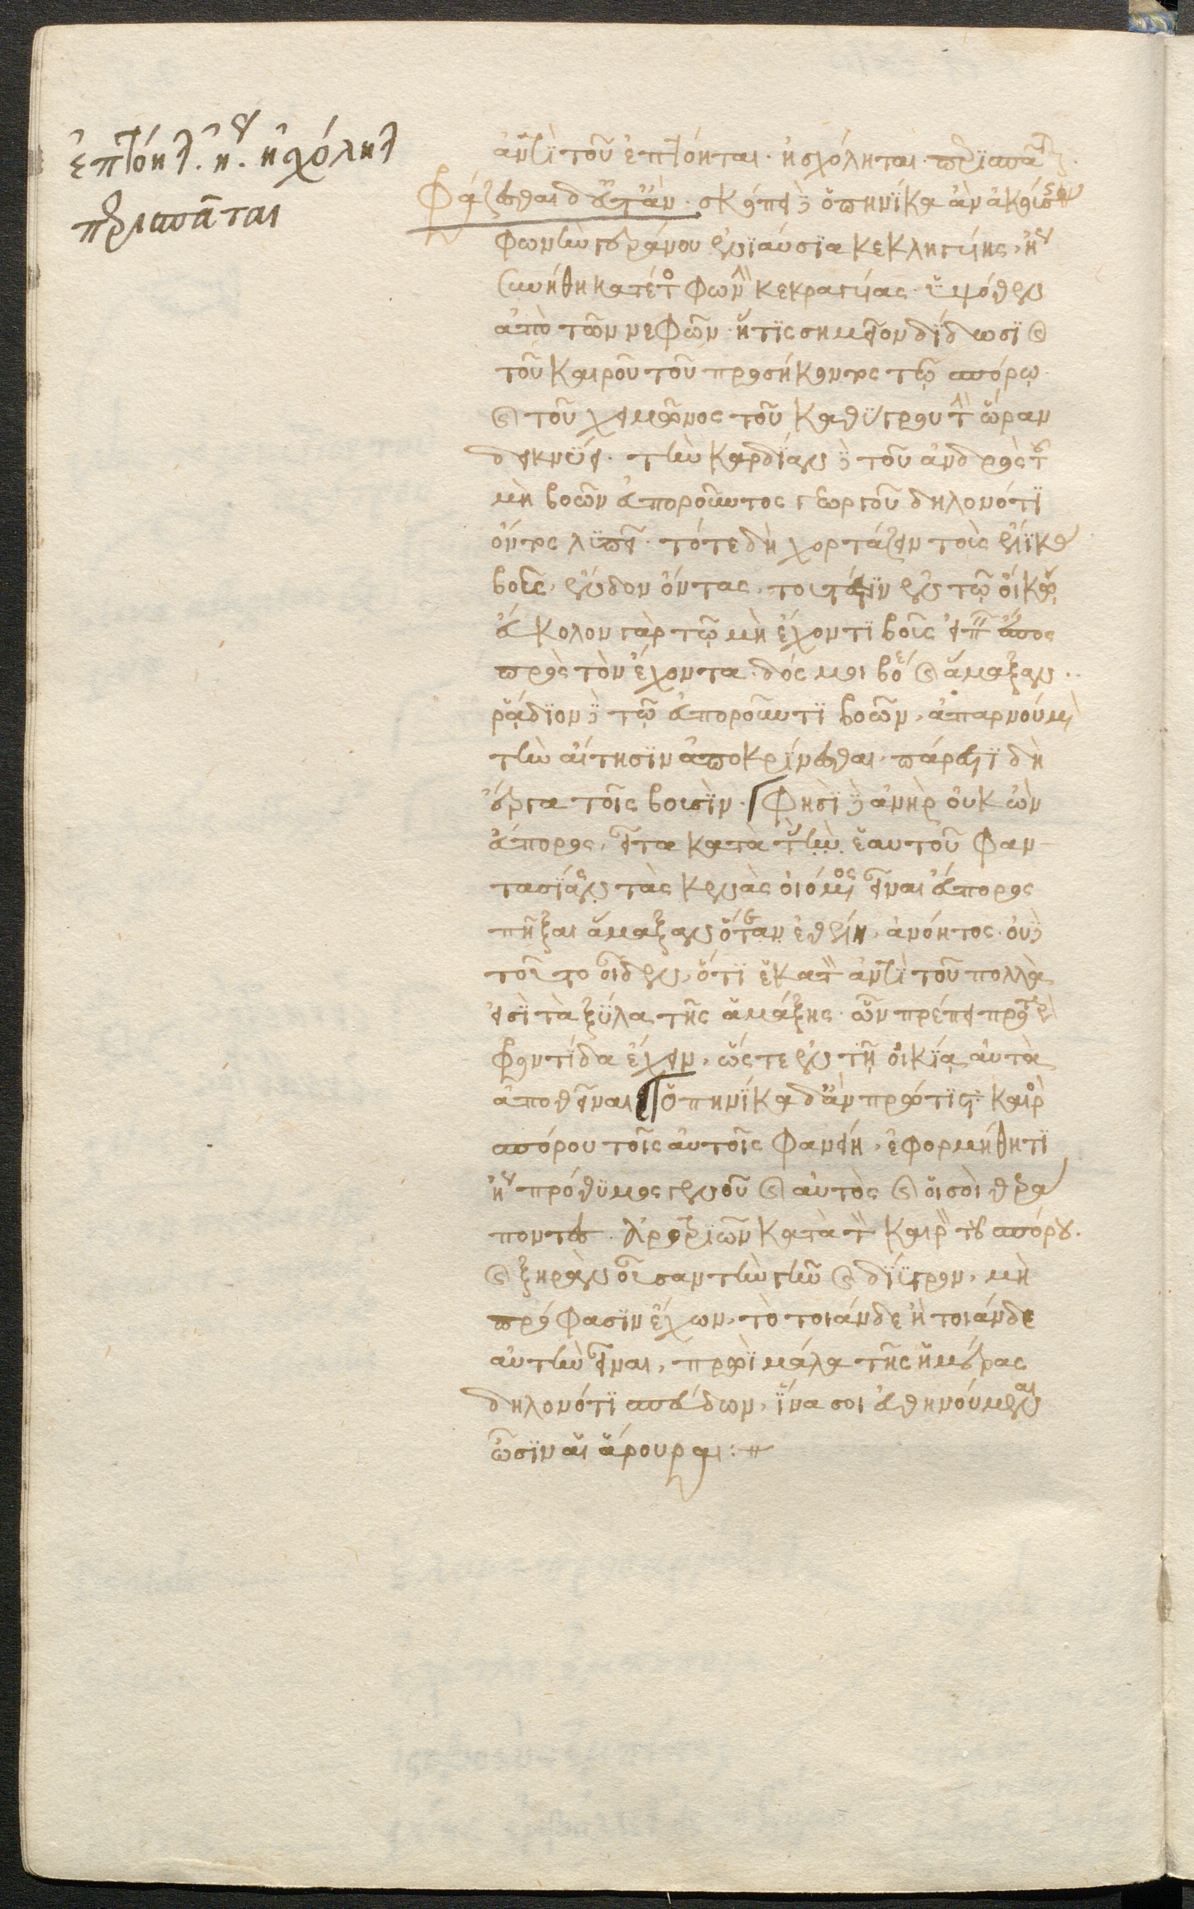 ἐπτόητ. ἢ. ἠσχόλητ
περισπᾶται
ἀντὶ τοῦ ἐπτόηται. ἠσχόληται. περισπᾶται.
Φράζεσθαι δ' εὖτ' ἂν. σκόπει δὲ ὁπηνίκα ἂν ἀκούσῃς
φωνὴν γεράνου ἐνιαύσια κεκληγυίης, ἢ
συνήθη κατ' ἔτος φωνὴν κεκραγυίας ὑψόθεν
ἀπὸ τῶν νεφῶν. ἥτις σημεῖον δίδωσι καὶ
τοῦ καιροῦ τοῦ προσήκοντος τῷ σπόρῳ.
καὶ τοῦ χειμῶνος τοῦ καθύγρου τὴν ὥραν
δεικνύει. τὴν καρδίαν δὲ τοῦ ἀνδρὸς τοῦ
μὴ βοῶν εὐποροῦντος γεωργοῦ δηλονότι
ὄντος λυπεῖ. τότε δὴ χορτάζειν τοὺς ἕλικας
βοῦς, ἔνδον ὄντας, τουτέστιν ἐν τῷ οἴκῳ.
εὔκολον γὰρ τῷ μὴ ἔχοντι βοῦς εἰπεῖν ἔπος
πρὸς τὸν ἔχοντα. δός μοι βόε καὶ ἅμαξαν.
ῥᾴδιον δὲ τῷ εὐποροῦντι βοῶν, ἀπαρνούμενον
τὴν αἴτησιν ἀποκρίνεσθαι. πάρεστι δὴ
ἔργα τοῖς βουσίν. Φησὶ δὲ ἀνὴρ οὐκ ὢν
εὔπορος, εἶτα κατὰ τὴν ἑαυτοῦ φαν-
τασίαν τὰς κενὰς οἰόμενος εἶναι εὔπορος
πῆξαι ἅμαξαν ὅταν ἐθέλῃ, ἀνόητος. οὐδὲ
τοῦτο οἶδεν, ὅτι ἑκατὸν ἀντὶ τοῦ πολλὰ
εἰσὶ τὰ ξύλα τῆς ἁμάξης. ὧν πρέπει πρότερον
φροντίδα ἔχειν, ὥστε ἐν τῇ οἰκίᾳ αὐτὰ
ἀποθεῖναι. Ὁπηνίκα δ' ἂν πρώτιστα καιρὸς
σπόρου τοῖς αὐτοῖς φανείη, ἐφορμήθητι
ἢ πρόθυμος γενοῦ καὶ αὐτὸς καὶ οἱ σοὶ θερά
ποντες. ἀροτριῶν κατὰ τὸν καιρὸν τοῦ σπόρου.
καὶ ξηρὰν οὖσαν τὴν γῆν καὶ δίϋγρον, μὴ
πρόφασιν ἔχων, τὸ τοιάνδε ἢ τοιάνδε
αὐτὴν εἶναι, πρωῒ μάλα τῆς ἡμέρας
δηλονότι σπεύδων, ἵνα σοι εὐθηνούμεναι
ὦσιν αἱ ἄρουραι: